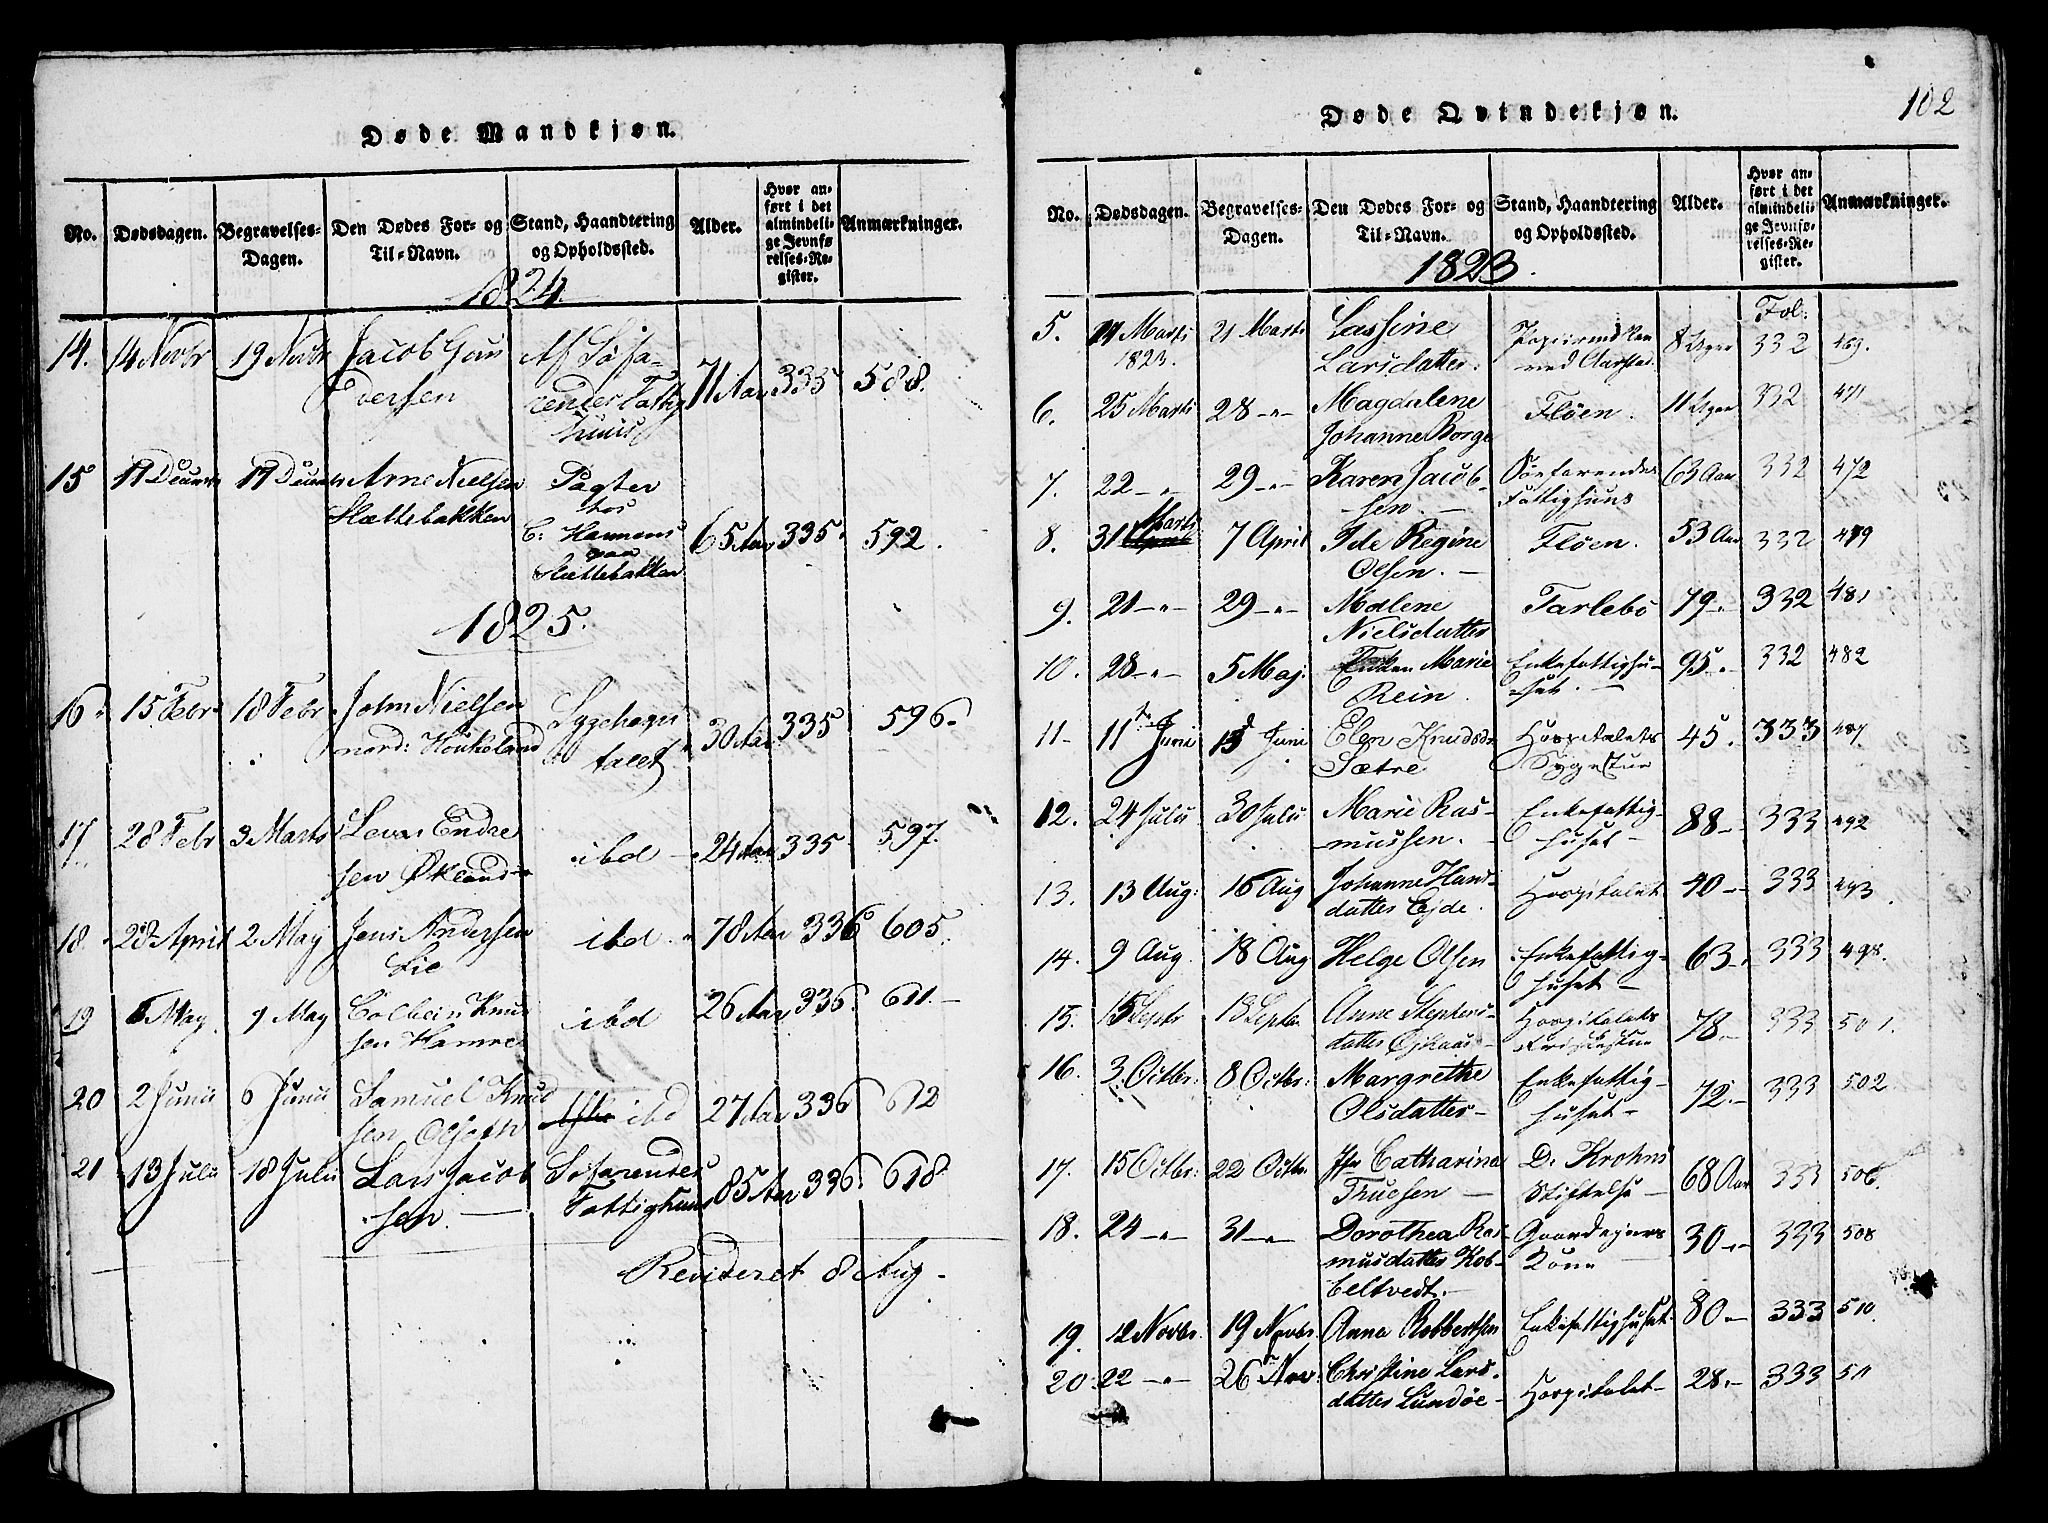 Døde Mandkjøn.
No. Dødsdagen. Begravelses-Dagen. Den Dødes For- og Til-Navn. Stand, Haandtering og Opholdssted. Alder. Hvor anført i det almindelige Jevnførelses-Register. Anmærkninger.
1824.
14. 14 Novbr 19 Novbr Jacob
Iversen Af Søfarendes Fattighuus 71 Aar 335 588.
15 17 Decemb 17 Decemb Arne Nielsen
Slettebakken Pagter hos C. Hannens paa Slettebakken 65 Aar 335. 592.
1825.
16. 15 Febr 18 Febr John Nielsen
nord: Houkeland Sygehospitalet 30 Aar 335 596.
17. 28 Febr 3 Marts Endre
sen Økland ibd 24 Aar 335 597.
18. 28 April 2 May Jens Andersen
Lie ibd. 78 Aar 336 605.
19 May 9 May Colbein Knud
sen Hamre ibd 26 Aar 336. 611.
20 2 Junii 6 Junii Samuel Knud
sen Olseth ibd 27 Aar 336 612
21 13 Julii 18 Julii Lars Jacob
sen. Søfarendes Fattighuus 85 Aar 336. 618.
Revideret 8 Aug.
102
Døde Qvindekjøn.
No. Dødsdagen. Begravelses-Dagen. Den Dødes For- og Til-Navn. Stand, Haandtering og Opholdssted. Alder. Hvor anført i det almindelige Jevnførelses-Register. Anmærkninger.
1823.
Fol:
5. 14 Marts 1823. 21 Marts Lassine
Larsdatter. ved Aarstad. 8 Uger 332 469.
6. 25 Marts 28 -"- Magdalene
Johanne Borge Fløen. 11 Uger 332 471
7. 22 -"- 29 -"- Karen Jacob-
sen. Søefarendes Fattighuus 63 Aar 332 472
8. 31 Marts 7 April Ide Regine
Olsen. Fløen. 53 Aar 332 479
9. 21 -"- 29 -"- Malene
Nielsdatter Tarlebø 79. 332 481
10. 28 -"- 5 Maj. Enken Marie
Rein. Enkefattighuset. 95. 332 482
11 11 Junii 13 Juni Elen Knudsdr
Sætre Hospitalets Sygestue 45. 333 487.
12. 24 Julii 30 Julii Marie Ras-
mussen. Enkefattighuset 88 333 492
13. 13 Aug: 16 Aug Johanne Hans-
datter Eide. Hospitalet 40 333 493.
14. 9 Aug. 18 Aug Helge Olsen Enkefattighuset 63. 333 498.
15. 15 Septr 18 Septbr Anne Stephens-
datter Hospitalets 78 333 501.
16. 3 Octbr: 8 Octbr: Margrethe
Olsdatter Enkefattighuset 72. 333 502.
17. 15 Octbr: 22 Octbr: Jfr Catharina
Truesen D. Krohns Stiftelse 68 Aar 333 506.
18. 24 -"- 31 -"- Dorothea Ras-
musdatter Kob-
beltvedt. Gaardejers Kone 30 333 508
19. 12 Novbr. 19 Novbr Anna Robbertsen Enkefattighuset. 80 333 510.
20. 22 -"- 26 Nov: Christine Lars-
datter Lundøe Hospitalet 28. 333 511